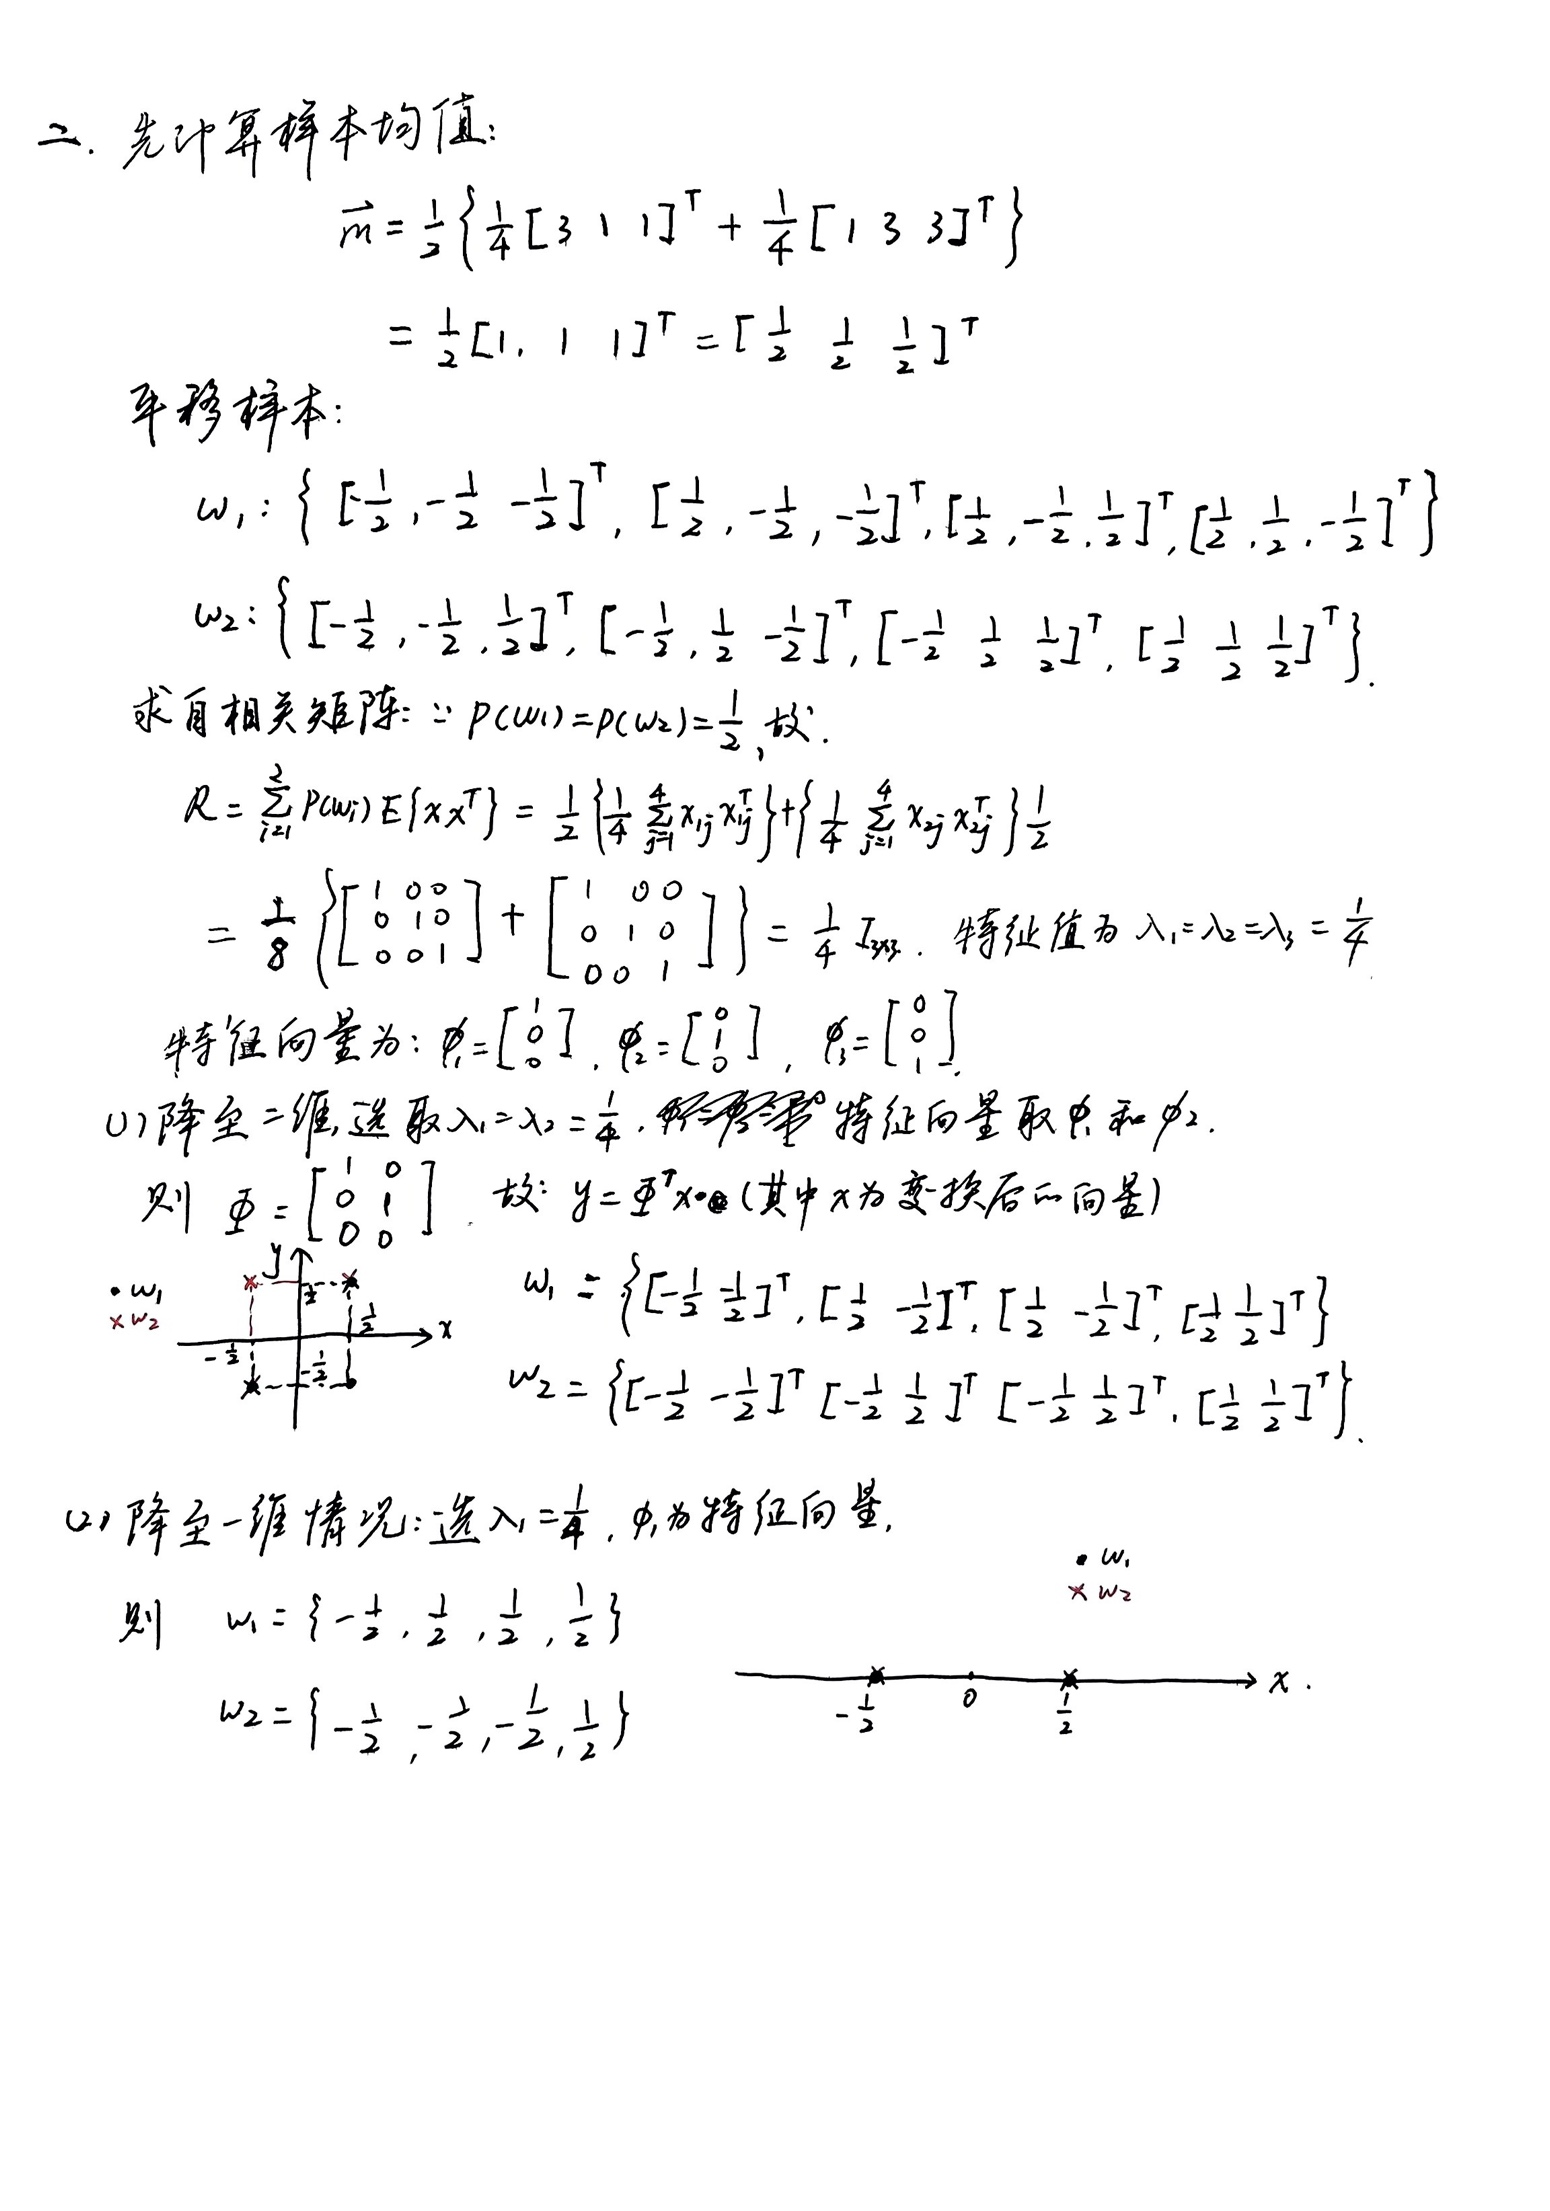 二. 先计算样本均值:
m⃗ = 1/2 { 1/4 [3 1 1]ᵀ + 1/4 [1 3 3]ᵀ }
= 1/2 [1, 1 1]ᵀ = [1/2 1/2 1/2]ᵀ
平移样本:
w₁: { [-1/2, -1/2 -1/2]ᵀ, [1/2, -1/2, -1/2]ᵀ, [1/2, -1/2, 1/2]ᵀ, [1/2, 1/2, -1/2]ᵀ }
w₂: { [-1/2, -1/2, 1/2]ᵀ, [-1/2, 1/2 -1/2]ᵀ, [-1/2 1/2 1/2]ᵀ, [1/2 1/2 1/2]ᵀ }.
求自相关矩阵: ∵ P(w₁)=P(w₂)=1/2, 故:
R = Σ_{i=1}^{2} P(wᵢ) E{xxᵀ} = 1/2 { 1/4 Σ_{j=1}^{4} x₁ⱼ x₁ⱼᵀ } + { 1/4 Σ_{j=1}^{4} x₂ⱼ x₂ⱼᵀ } 1/2
= 1/8 { [1 0 0; 0 1 0; 0 0 1] + [1 0 0; 0 1 0; 0 0 1] } = 1/4 I₃ₓ₃. 特征值为 λ₁=λ₂=λ₃ = 1/4
特征向量为: φ₁=[1; 0; 0], φ₂=[0; 1; 0], φ₃=[0; 0; 1].
(1) 降至二维, 选取λ₁=λ₂=1/4, 特征向量取φ₁和φ₂.
则 Φ = [1 0; 0 1; 0 0]. 故: y=Φᵀx (其中x为变换后的向量)
y
1/2
• w₁
× w₂
1/2
x
-1/2
-1/2
w₁ = { [-1/2 -1/2]ᵀ, [1/2 -1/2]ᵀ, [1/2 -1/2]ᵀ, [1/2 1/2]ᵀ }
w₂ = { [-1/2 -1/2]ᵀ [-1/2 1/2]ᵀ [-1/2 1/2]ᵀ, [1/2 1/2]ᵀ }.
(2) 降至一维情况: 选λ₁=1/4, φ₁为特征向量,
• w₁
× w₂
则 w₁ = { -1/2, 1/2, 1/2, 1/2 }
w₂ = { -1/2, -1/2, -1/2, 1/2 }
-1/2 0 1/2 x.